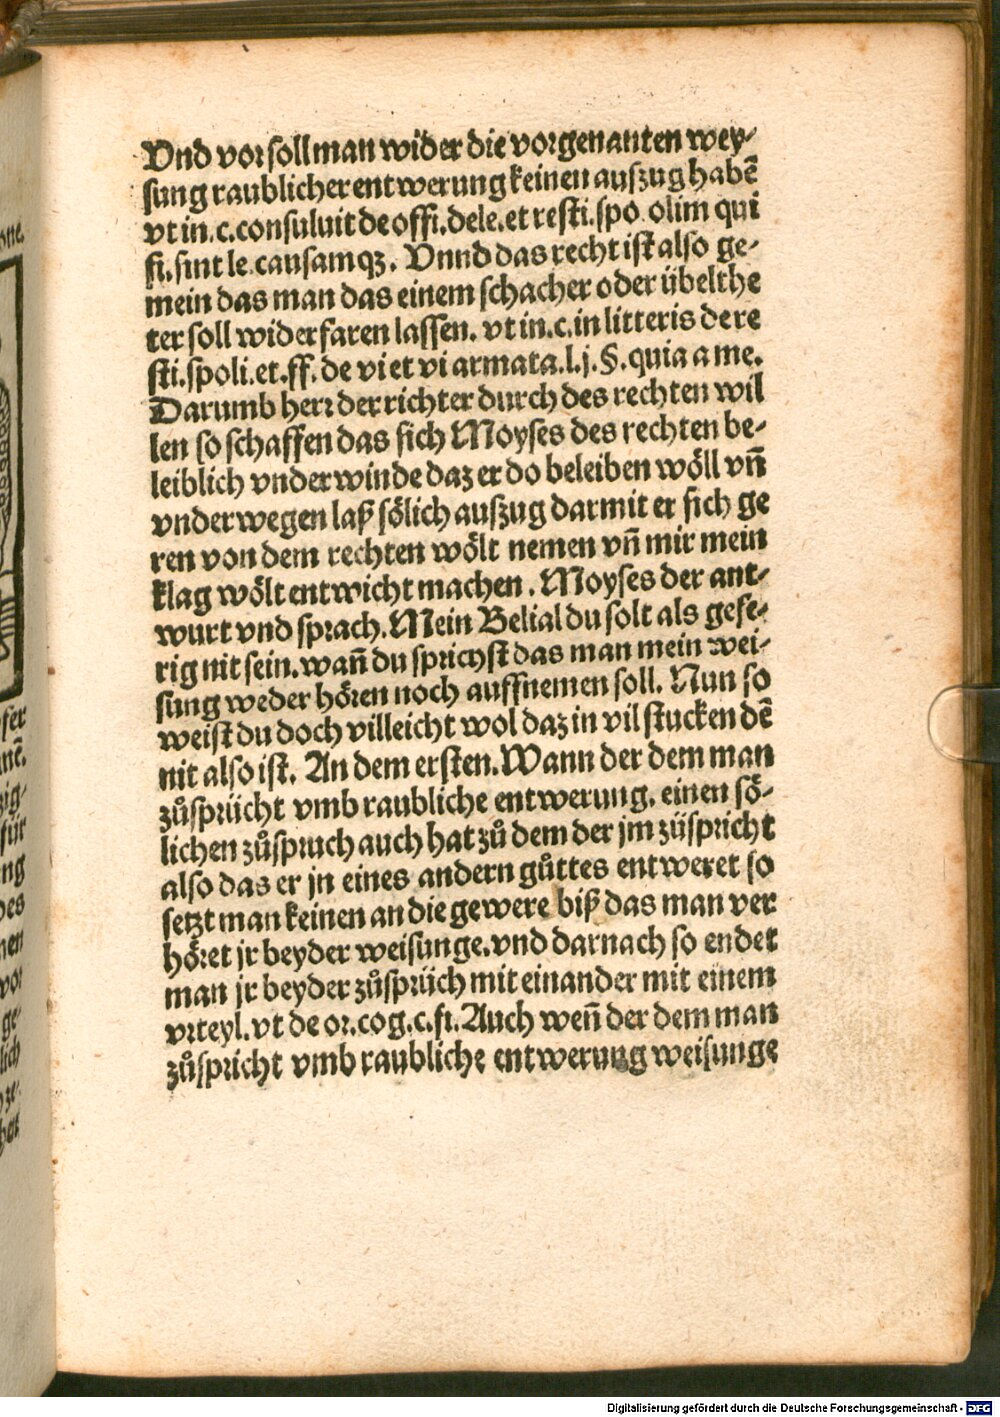 Vnd vor soll man wider die vorgenanten wey⸗
sung raublicher entwerung keinen auszug habē
vt in. c. consuluit de offi. dele. et resti. spo. olim qui
fi. sint le. causamqꝫ. Vnnd das recht ist also ge⸗
mein das man das einem schacher oder übelthe
ter soll widerfaren lassen. vt in. c. in litteris de re
sti. spoli. et. ff. de vi et vi armata. l. j. §. quia a me.
Darumb herr der richter durch des rechten wil
len so schaffen das sich Moyses des rechten be⸗
leiblich vnderwinde daz er do beleiben wöll vn̄
vnderwegen laß sölich auszug darmit er sich ge
ren von dem rechten wölt nemen vn̄ mir mein
klag wölt entwicht machen. Moyses der ant⸗
wurt vnd sprach. Mein Belial du solt als gefe⸗
rig nit sein. wan̄ du sprichst das man mein wei⸗
sung weder hören noch auffnemen soll. Nun so
weist du doch villeicht wol daz in vil stucken dē
nit also ist. An dem ersten. Wann der dem man
zůsprücht vmb raubliche entwerung. einen sö⸗
lichen zůspruch auch hat zů dem der jm züspricht
also das er jn eines andern gůttes entweret so
setzt man keinen an die gewere biß das man ver
höret jr beyder weisunge. vnd darnach so endet
man jr beyder zůsprüch mit einander mit einem
vrteyl. vt de or. cog. c. fi. Auch wen̄ der dem man
zůspricht vmb raubliche entwerung weisunge
Digitalisierung gefördert durch die Deutsche Forschungsgemeinschaft - DFG